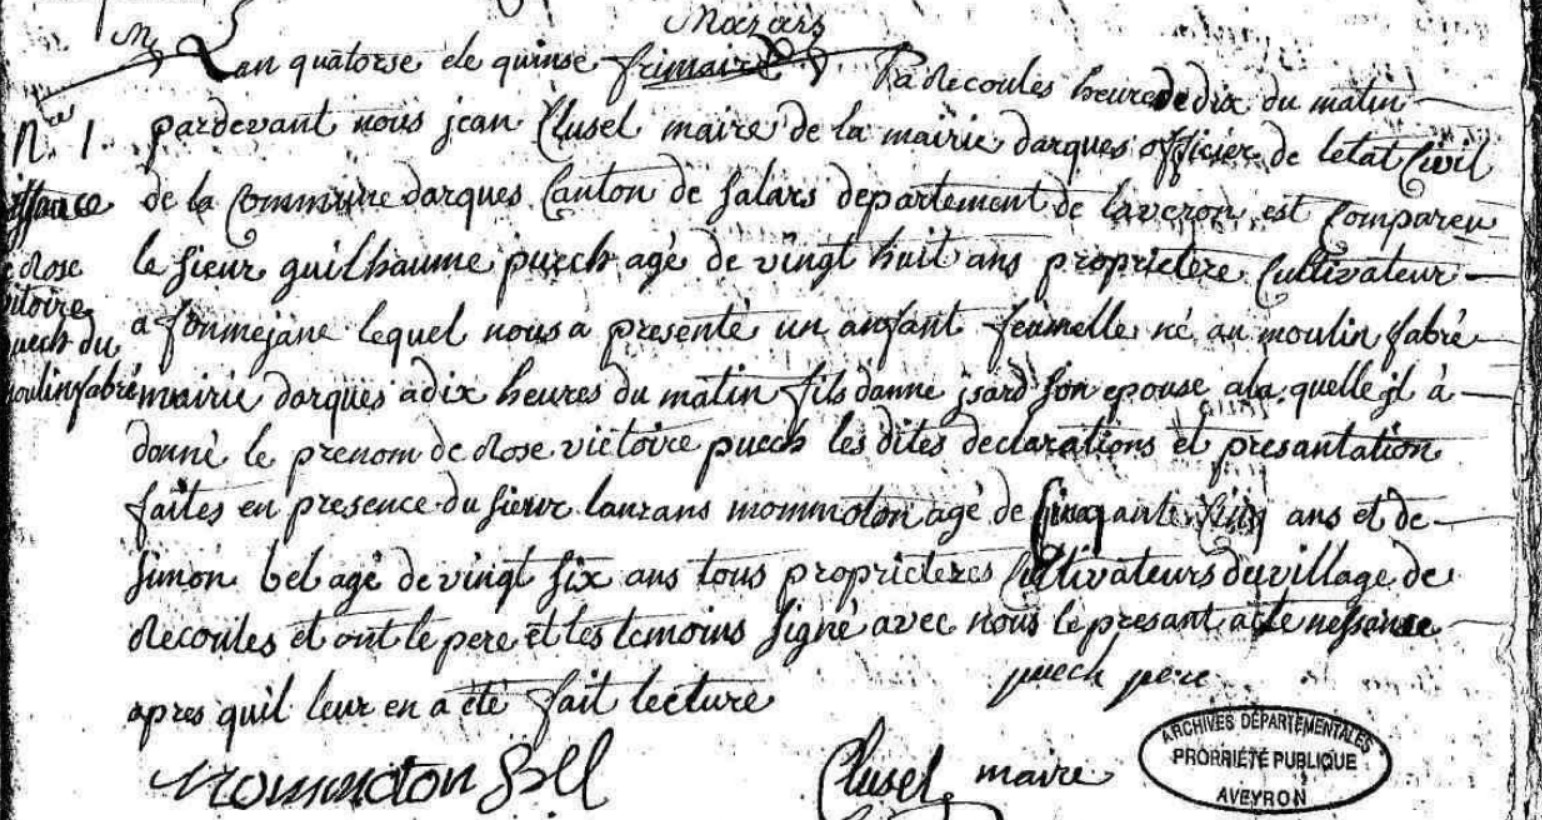 Mazars
Lan quatorse ele quinse frimaire a recoules heure de dix du matin
pardevant nous jean Clusel maire de la mairie darques officier de letat Civil
de la Commune darques Canton de Salars departement de laveron est Compareu
le sieur guilhaume puech agé de vingt huit ans proprietere Cultivateur
a fonmejane lequel nous a presenté un anfant feumelle né au moulin fabré
mairie darques a dix heures du matin fils danne jsard son epouse ala quelle jl à
donné le prenom de Rose victoire puech les dites declarations et presantation
faites en presence du sieur laurans mommoton agé de Cinqante Cinq ans et de
simon bel agé de vingt six ans tous proprieteres Cultivateurs du village de
Recoules et ont le pere et les temoins signé avec nous le presant acte nessance
apres quil leur en a été fait lecture
puech pere
Mommoton Bel
Clusel maire
N. 1
issance
Rose
itoire
uech du
oulin fabré
ARCHIVES DÉPARTEMENTALES
PROPRIÉTÉ PUBLIQUE
AVEYRON